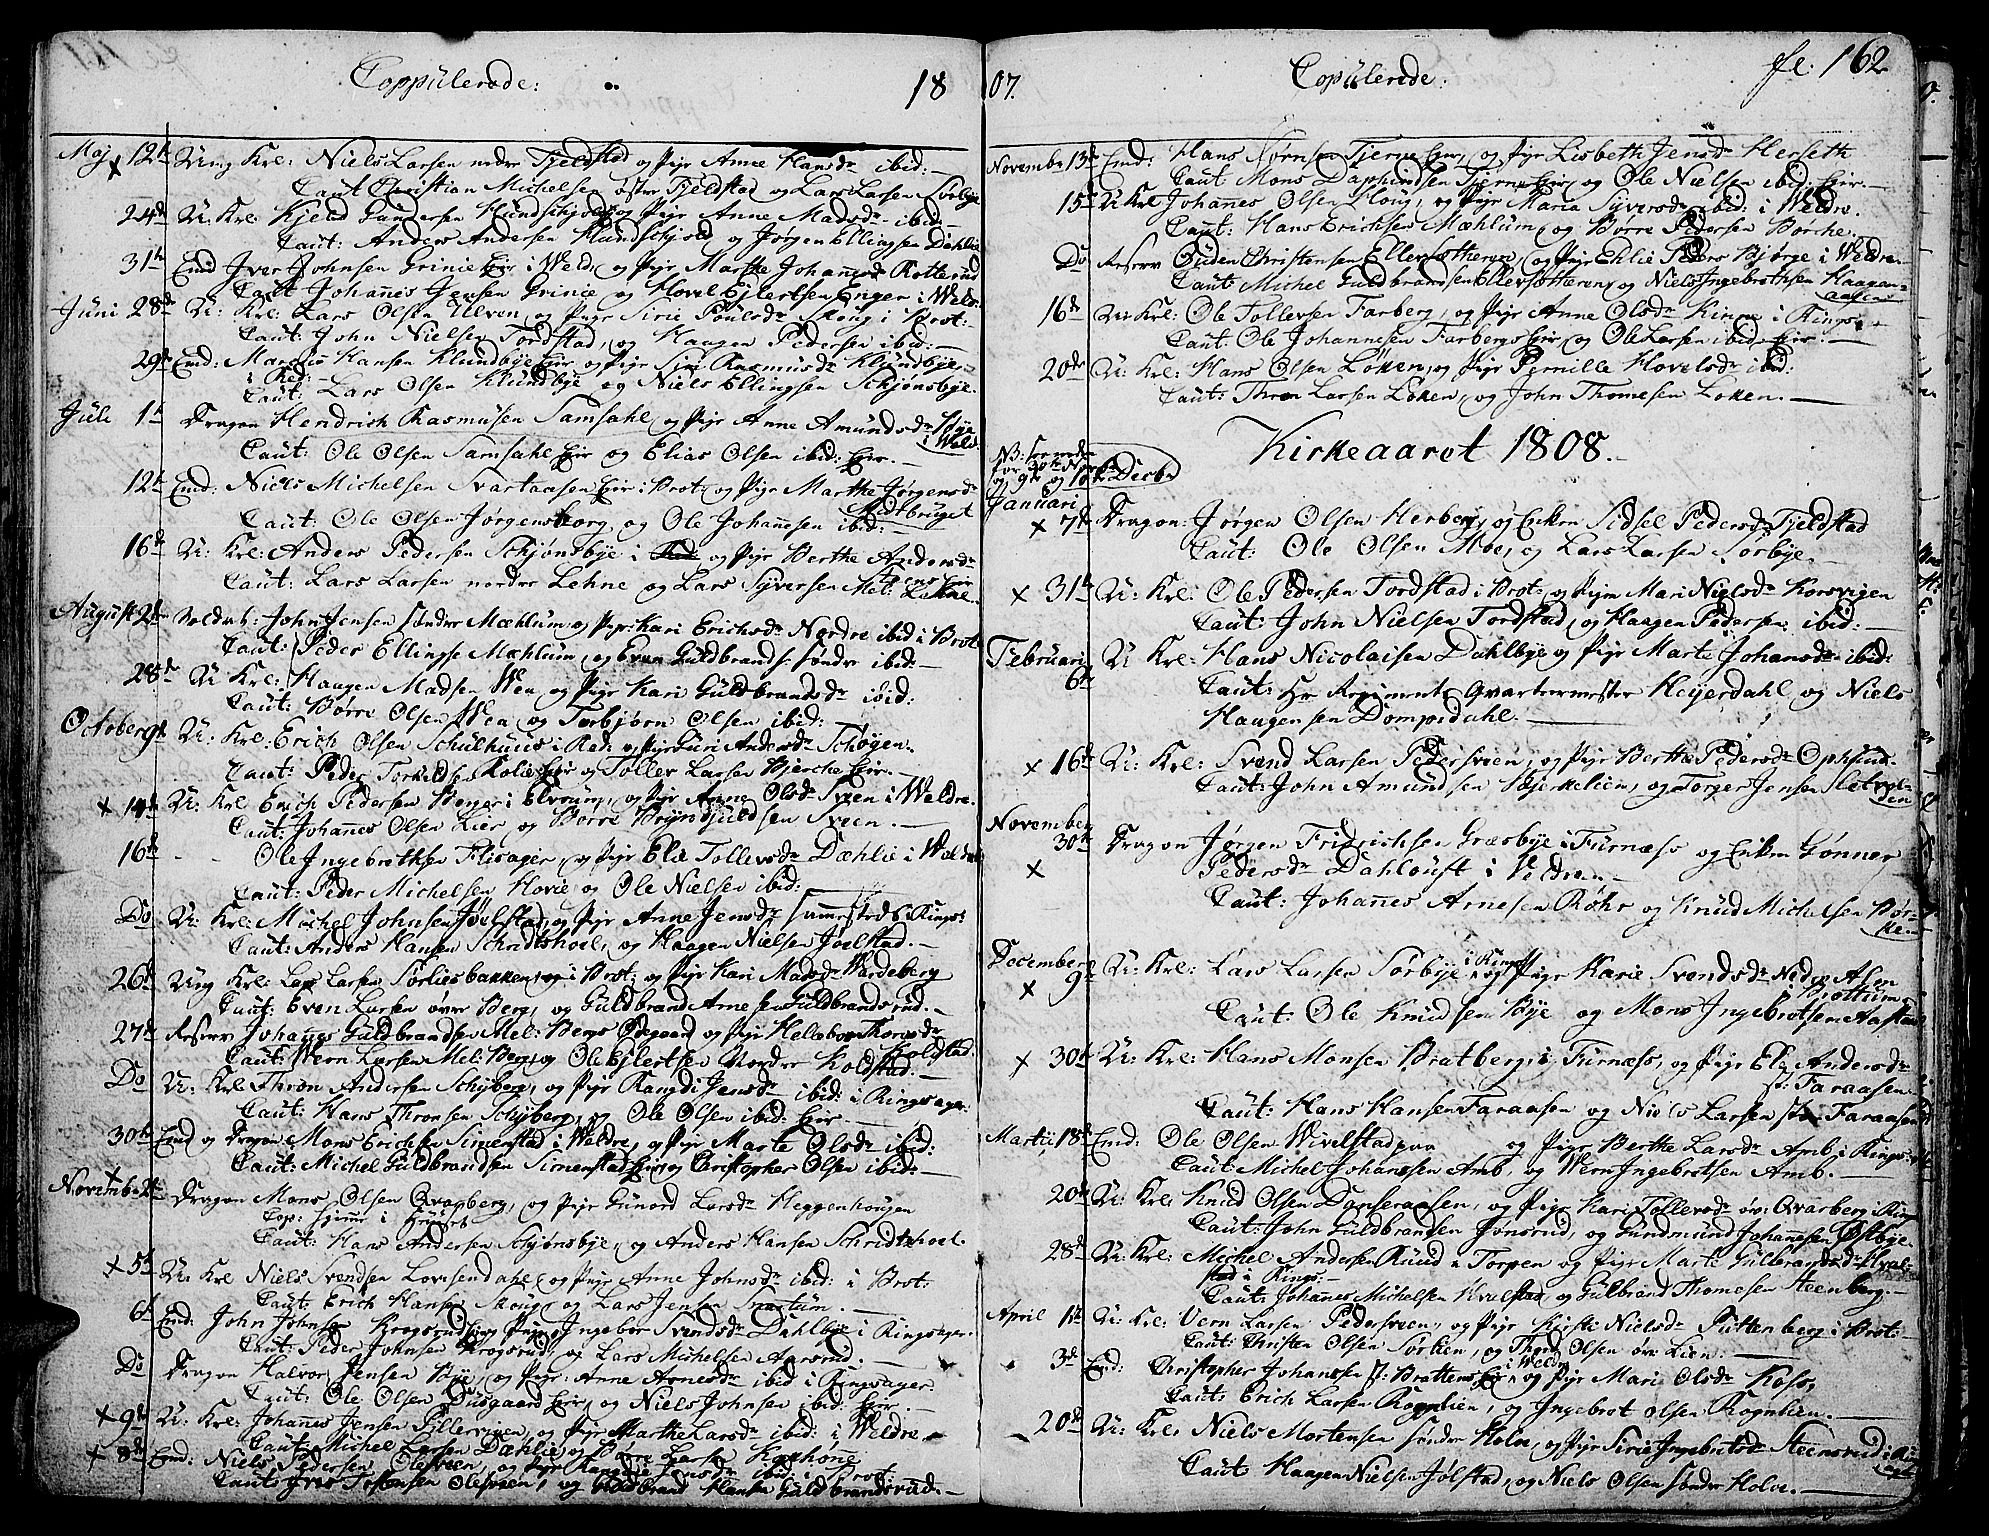 Coppulerede:
18
Maj 12te Ung Krl: Niels Larsen nedre Tjeldstad og Pige Anne Hansdr ibid:
Caut Christian Michelsen østre Tjeldstad og Lars Larsen Sørbye
24de U: Krl: Kjeld Gundersen Hundschjold og Pige Anne Madsdr ibid:
Caut: Anders Andersen Hundschjold og Jørgen Ellingsen Dahlie
31te Emd Iver Johnsen Grinie Eier i Weld, og Pige Marthe Johannesdr Kotterud
Caut Johannes Jensen Grinie og Hovel Ejlertsen Enger i Weld:
Juni 28de U: Krl: Lars Olsen Ulven og Pige Sirie Poulsdr Skoug i Brot:
Caut: John Nielsen Tordstad, og Haagen Pedersen ibid:
29de Emd: Hansen Klundbye Eier og Pige Siri Rasmusdr Klundbye
i Red:
Caut: Lars Olsen Klundbye og Niels Ellingsen Schjønsbye.
Juli 1te Dragon Hendrich Rasmusen Samsahl og Pige Anne Amundsdr Bye
i Weld
Caut: Ole Olsen Samsahl Eier og Elias Olsen ibid: Eier.
12te Emd: Niels Michelsen Svartaasen Eier i Brot, og Pige Marthe Jørgensdr
Midtbruget
Caut: Ole Olsen Jørgensborg, og Ole Johannesen ibid:
16de U: Krl: Anders Pedersen Schjønsbye i og Pige Berthe Andersdr
Caut: Lars Larsen nordre Lehne og Lars Syversen Mel: Lehne.
August 2den Soldat: John Jensen søndre Mæhlum og Pige: Kari Erichsdr Nordre ibid i Brot
Caut: Peder Ellingse Mæhlum, og Even Guldbrands: søndre ibid:
28de U Krl: Haagen Madsen Wea og Pige Kari Guldbrandsdr ibid:
Caut: Børre Olsen Wea og Torbjørn Olsen ibid:
October 9de U: Krl: Erich Olsen Schulhuus i Red: og Pige Guri Andersdr Schogen.
Caut: Peder Torkildsen Kolie Eier og Toller Larsen Bjerche Eier.
x 14de U: Krl Erich Pedersen Berger i Elvrum, og Pige Anne Olsdr Sveen i Weldre.
Caut: Johannes Olsen Lier og Børre Bryndjuldsen Sveen.
16de Ole Ingebrethsen Flisager, og Pige Elie Tollersdr Dæhlie i Weldre
Caut: Peder Michelsen Hovie og Ole Nielsen ibid:
Do U: Krl: Michel Johnsen Jølstad og Pige Anne Jensdr Rings:
Caut: Anders Hansen Schredtshoel, og Haagen Nielsen Jølstad.
26de Ung Krl: Lars Larsen Sørliesbakken i Brot: og Pige Kari Madsdr Wardeberg
Caut: Even Larsen øvre Berg, og Guldbrand Arnesen Guldbrandsrud.
27de Reserv Johannes Guldbrandsen Mel: Bergs Ødegaard og Pige Helleborr Thorsdr
Kolstad.
Caut: Wern Larsen Mel: Berg, og Ole Ejlertsen Nordre Kolstad.
Do U: Krl Thron Andersen Schjberg, og Pige Rangdi Jensdr ibid: i Ringsager:
Caut: Hans Thronsen Schjberg, og Ole Olsen ibid: Eier.
30te Emd og Dragon Mons Erichsen Simenstad i Weldre, og Pige Marte Olsdr ibid:
Caut: Michel Guldbrandsen Simenstad Eier, og Christopher Olsen ibid:
Novemb: 2den Dragon Mons Olsen Qvarberg, og Pige Gunord Larsdr Heggenhougen
Cop: hjemme i Huuset
Caut: Hans Andersen Schjønsbye, og Anders Hansen Schredtshoel.
x 5te U: Krl Niels Svendsen Lovisendahl og Pige Anne Johnsdr ibid: i Brot:
Caut: Erich Hansen Skoug og Lars Jensen Snartum.
6te Emd: John Johnsen Krogsrud Eier og Pige Ingebor Svendsdr Dahlbye i Ringsager.
Caut: Peder Johnsen Krogsrud, og Lars Michelsen Aarsrud.
Do Dragon Halvor Jensen Bye, og Pige: Anne Arnesdr ibid i Ringsager.
Caut: Ole Olsen Dusgaard Eier, og Niels Johnsen ibid: Eier.
x 9de U: Krl: Johannes Jensen Sillerviigen, og Pige Marthe Larsdr ibid: i Weldre
Caut: Michel Larsen Dæhlie, og Børre Larsen
x 8de Emd: Niels Pedersen Olesveen, og Pige Jensdr ibid i Brot:
Caut: Iver Olesveen, og Guldbrand Hansen Guldbrandsrud.
07.
Copulerede:
fl: 162
Novembr 13de Emd: Hans Sørnsen Tjerne Eier, og Pige Lisbeth Jensdr Herseth
Caut: Mons Daphindsen Tjerne Eier og Ole Nielsen ibid: Eier.
15de U Krl Johannes Olsen Houg, og Pige Maria Syversdr ibid: i Weldre.
Caut: Hans Erichsen Mæhlum, og Børre Pedersen Børche.
Do Reserv Guden Christensen Ellevsætteren, og Pige Ehlie Peders Bjørge i Weldre
Caut Michel Guldbrandsen Ellevsætteren, og Niels Ingebrethsen Haagen-
aasen
16de U: Krl: Ole Tollersen Farberg, og Pige Anne Olsdr Kinge i Rings:
Caut: Ole Johannesen Farberg Eier og Ole Larsen ibid Eier:
20de U: Krl: Hans Olsen Løken, og Pige Pernille Hovelsdr ibid:
Caut: Thron Larsen Løken, og John Thomesen Løken.
Kirkeaaret 1808.
NB: see nede
for 30te Nov:
og 9de og 10de Decbr
Januari
x 7de Dragon: Jørgen Olsen Herberg, og Enken Sidsel Pedersdr Tjeldstad
Caut: Ole Olsen Moe, og Lars Larsen Sørbye
x 31te U: Krl: Ole Pedersen Tordstad i Brot: og Pige Mari Nielsdr Korsvigen
Caut: John Nielsen Tordstad, og Haagen Pedersen ibid:
Februari U Krl: Hans Nicolaisen Dahlbye og Pige Marte Johansdr ibid:
6te Caut: Hr Regiments Qvarteermester Heyerdahl og Niels
Haagensen Dompsdahl.
x 16de U: Krl: Svend Larsen Pedersveen, og Pige Berthe Pedersdr Ophuus.
Caut: John Amundsen Bjerkelien, og Torger Jensen Sletvol-
den
November
30te Dragon Jørgen Fridrichsen Græsbye i Furnæss og Enken Gønner
x Pedersdr Dahlouft i Veldren
Caut: Johannes Arnesen Røhr og Knud Michelsen Bør-
ken
December U: Krl: Lars Larsen Sørbye i Rings: og Pige Karie Svendsdr Nedre Alsen
9de Brøttum
x Caut: Ole Knudsen Bye og Mons Ingebretsen Aasen
x 30te U: Krl: Hans Monsen Bratberg i Furnæss, og Pige Eli Andersdr
st: Faraasen
Caut: Hans Hansen Faraasen og Niels Larsen st: Faraasen
Martij 18de Emd: Ole Olsen Wivelstad og Pige Berthe Larsdr Amb i Rings:
Caut Michel Johannesen Amb, og Wern Ingebretsen Amb.
20de U: Krl Knud Olsen Danseraasen, og Pige Kari Tollersdr øv: Qvarberg i Ring
Caut: John Guldbransen Jønsrud, og Gundmund Johannesen Østbye.
28de U: Krl: Michel Andersen Ruud i Torpen og Pige Marte Gullbrandsdr Hval-
stad i Rings:
Caut: Johannes Michelsen Hvalstad og Gulbrand Thomesen Steenberg.
April 1te U: Krl: Vern Larsen Pedersveen, og Pige Kirsti Nielsdr Puttenberg i Brot:
Caut: Christen Olsen Sørlien, og Thord Olsen øv: Lien:
3de Emd: Christopher Johannesen N: Bratteng Eier i Weldre og Pige Mari Olsdr Koss,
Caut: Erich Larsen Rognlien, og Ingebrot Olsen Rognlien.
20de U: Krl: Niels Mortensen søndre Holve, og Pige Sirie Ingebretsdr Steensrud i
Caut: Haagen Nielsen Jølstad, og Niels Olsen søndre Holve.